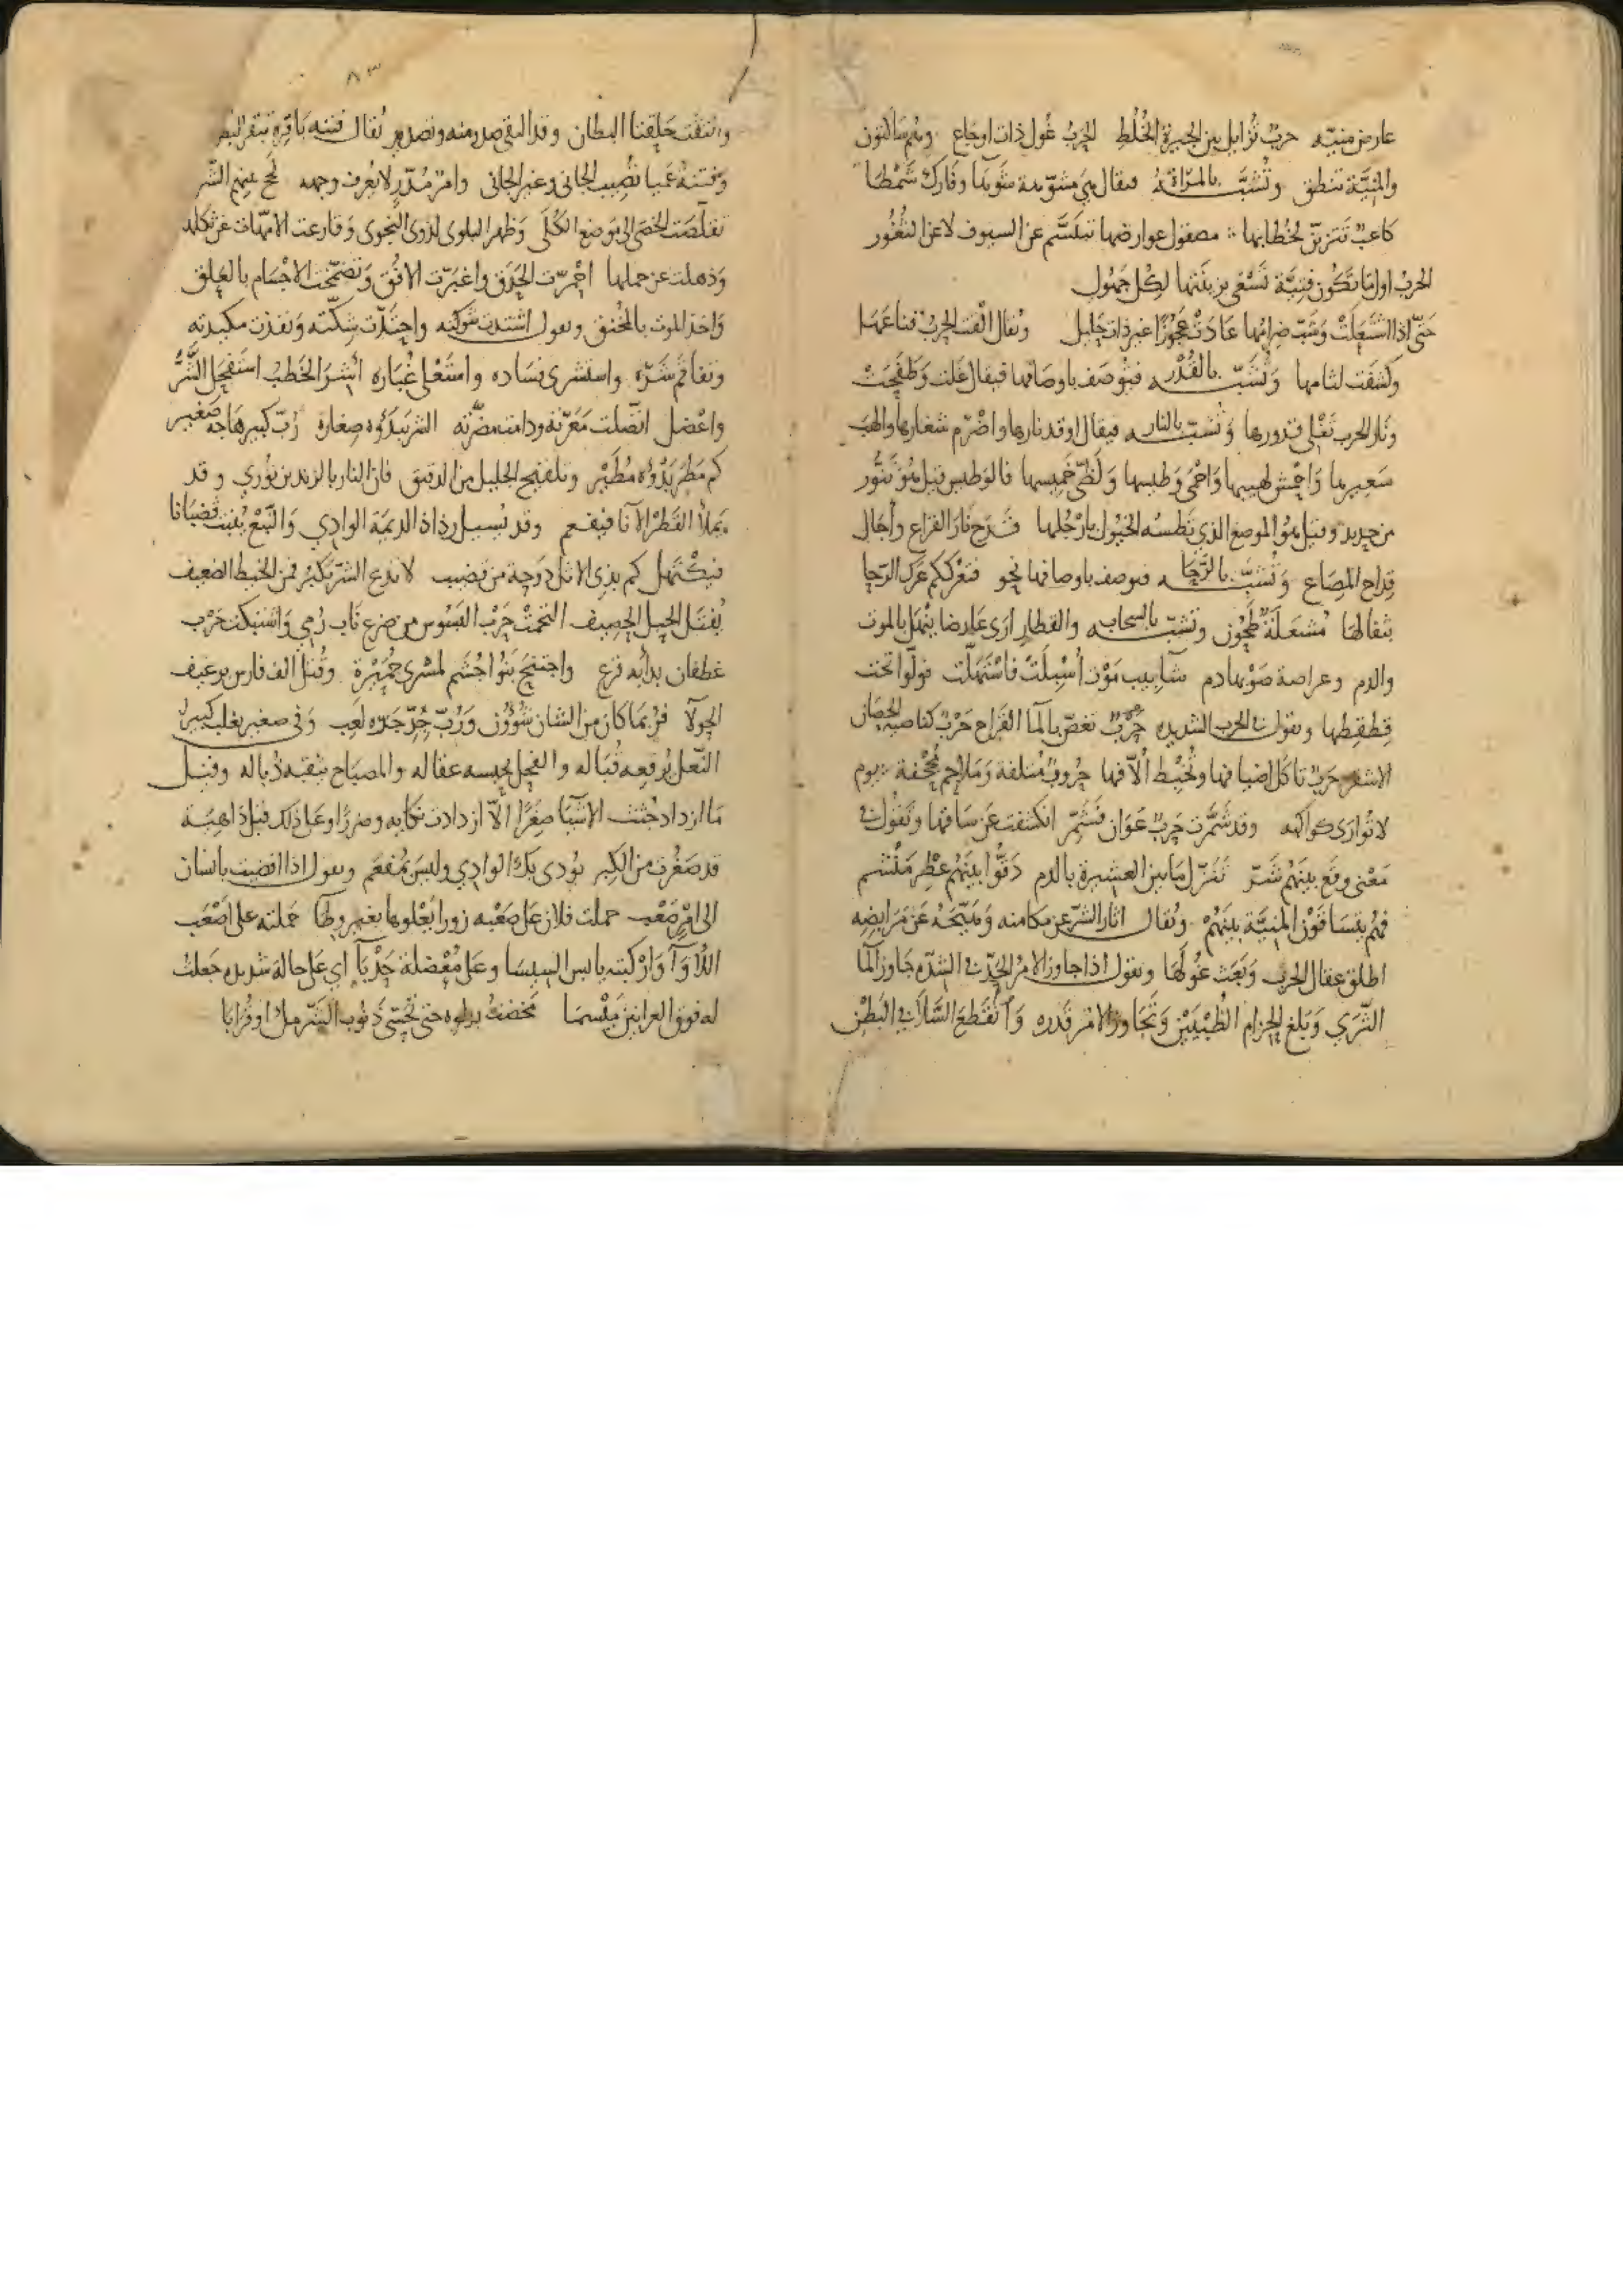 عارض منيّه حربٌ تُزايل بين الجيرة الخُلُطِ الحربُ غُول ذات اوجاع وهم ساكتون
والمنيّة تنطق وتُشبَّب بالمرأة فيقال هي مشوّهة شَوهَا وفارك شَمْطَا
كاعبٌ تتزيّن لخُطّابها مصقول عوارضها تبسَّم عن السيوف لا عن الثغُور
الحربُ اول ما تكون فتيّة تَسْعَى بزينتها لكل جهُول
حتّى اذا اشتعلَتْ وشبّ ضرامُها عادَتْ عجُوزًا غير ذات حليل ويُقال القت الحربُ قناعَها
وكشفت لثامها وتُشبّه بالقِدْر فيُوصف باوصافها فيقال غلت وطفَحَتْ
ونار الحرب تغلي قدورها وتُشبّه بالنار فيقال اوقد نارها واضرم شعارها والهبَ
سَعِيرها وَاحْمش لهيبها وَاحْمَى وَطيسها وَلَظَّى خَميسها فالوطيس قيل هُوَ تَنُّور
من حديد وقيل هُوَ الموضع الذي تَطسُه الخيُول بارْجُلها قَدَح نَارَ القراع وأجَال
قِداح المِصَاع وَتُشبّه بالرَّحَا فيوصف باوصافها نحو فتعْرُككم عَرْكَ الرّحا
بثفالها مُشعَلَةٌ طَحُون وتشبّه بالسحاب والقطار ارى عارضا ينهلّ بالموت
والدم وعراصة صَوْبها دم شآبيب مَوْت اُسْبِلَتْ فاسْتَهلَّت فولّوا تحت
قِطقِطها وتقول في الحرب الشديده حَرْبٌ تغصّ بالما القراح حَرْبٌ كناصية الحصان
الاشقر حَرْبٌ تأكل اضيافها وتُخبِط أُلّافها حُروبٌ مُتلفة وَمَلاحِم مُجْحفة يوم
لا توارى كواكبه وقد شَمَّرت حَرْبٌ عَوَان فَشَمِّر انكشفت عَن سَاقها وتَقُول في
مَعْنى وقَع بينَهُم شَرّ تَفَزّل مَا بين العشيرة بالدم دَقُّوا بينَهُم عِطْر مَنْشِم
فهُم يتسَاقَوْن المنيَّة بينَهُمْ ويُقال اثار الشرّ عن مكامنه وهَيّجَهُ عَن مَرَابضِه
اطلق عقال الحرب وَبَعَث غُولَها وتقول اذا جاوز الامر الحدّ في الشدّه جَاوز المآ
الثرى وَبَلغ الحِزام الطُّبْيَيْن وَتجَاوز الامر قَدره وَانْقطع السَّلا في البَطْن
والتقت حَلقتا البطان وقد التقى صدر منه وتصدير يُقال فتنه باقرة تبقر البطن
وفتنةٌ عَمْيا تصيب الجاني وغير الجاني وامرٌ مُدّبر لا يُعرف وجهه لجّ بينهم الشّر
تقلّصَت الخصَى الى موضع الكُلَى وَظهر البلوى لذوي النجوى وَقارعت الامهات عن ثكلها
وَذهلت عن حملها احْمرّت الحَدَق واغبرّت الافُق وَتضمّخت الاجْسَام بالعَلق
وَاخذ الموت بالمُخنق وتقول اشتدت شوكته واحتَدّت شِكّته وَنفذت مكيدته
وتفاقم شَرّه واستشرى فسَاده واستعْلى غُبَاره أشِرَ الخَطبُ استَفحَل الشَّرُّ
واعْضل اتّصلت مَعَرّته ودامت مضَرّته الشر يَبدَؤُه صِغاره رُبّ كبير هَاجه صَغير
كم مَطَر بَدْؤُه مُطَيْر وتلقيح الجليل من الدقيق فان النار بالزندين تُوري وقد
يَملأ القَطْر الآنا فيُفعم وقد يُسيل رذاذ الديمَة الوادي وَالنّبْع يُنبت قُضبَانا
فيكْتهل كم بذي الاثل دَوحة من قضيب لا تدع الشرّ يَكبُر فمن الخيط الضعيف
يُفتَل الحبل الحصيف التحمَتْ حَرْب البَسُوس من ضرع نَاب رُمي وَاشتبكت حَرْب
غطفان بدأبَة قرع واجتنح بَنُوا جُشَم لمشرى حُمَيْرة وقُتل الف فارس برغيف
الحَوْلا فرُبمَا كان من الشان شُؤُون وَرُبّ جِدّ جَرّه لَعِب وَفي صغير يغلب كبير
النّعل يُرقِعه قُبَاله والفحل يحبسه عقاله والمصبَاح يثقبه ذُباله وقيل
مَا ازداد جُثث الاشيَا صِغَرًا الّا ازدادت نكَايه وضررًا وعَلى ذلك قيل داهِيَة
قد صَغُرت من الكِبر يُودي بكَ الوادي ولَيسَ بمُفعَم وتقول اذا افضيت بانسان
الى امْرٍ صَعْب حملت فلان على صَعْبه زورا يَعْلوها بغير وطَا حَملته على اصْعَب
اللأوآ وَارْكبته يابس السيسا وعَلى مُعْضلة حَدْبآ اي عَلى حالة شديده جعلتُ
له فوق العرانين مَيْسمَا مخضتُ بدلوه حتى تحسّى ذَنُوب الشّر ملأ او قُرابَا